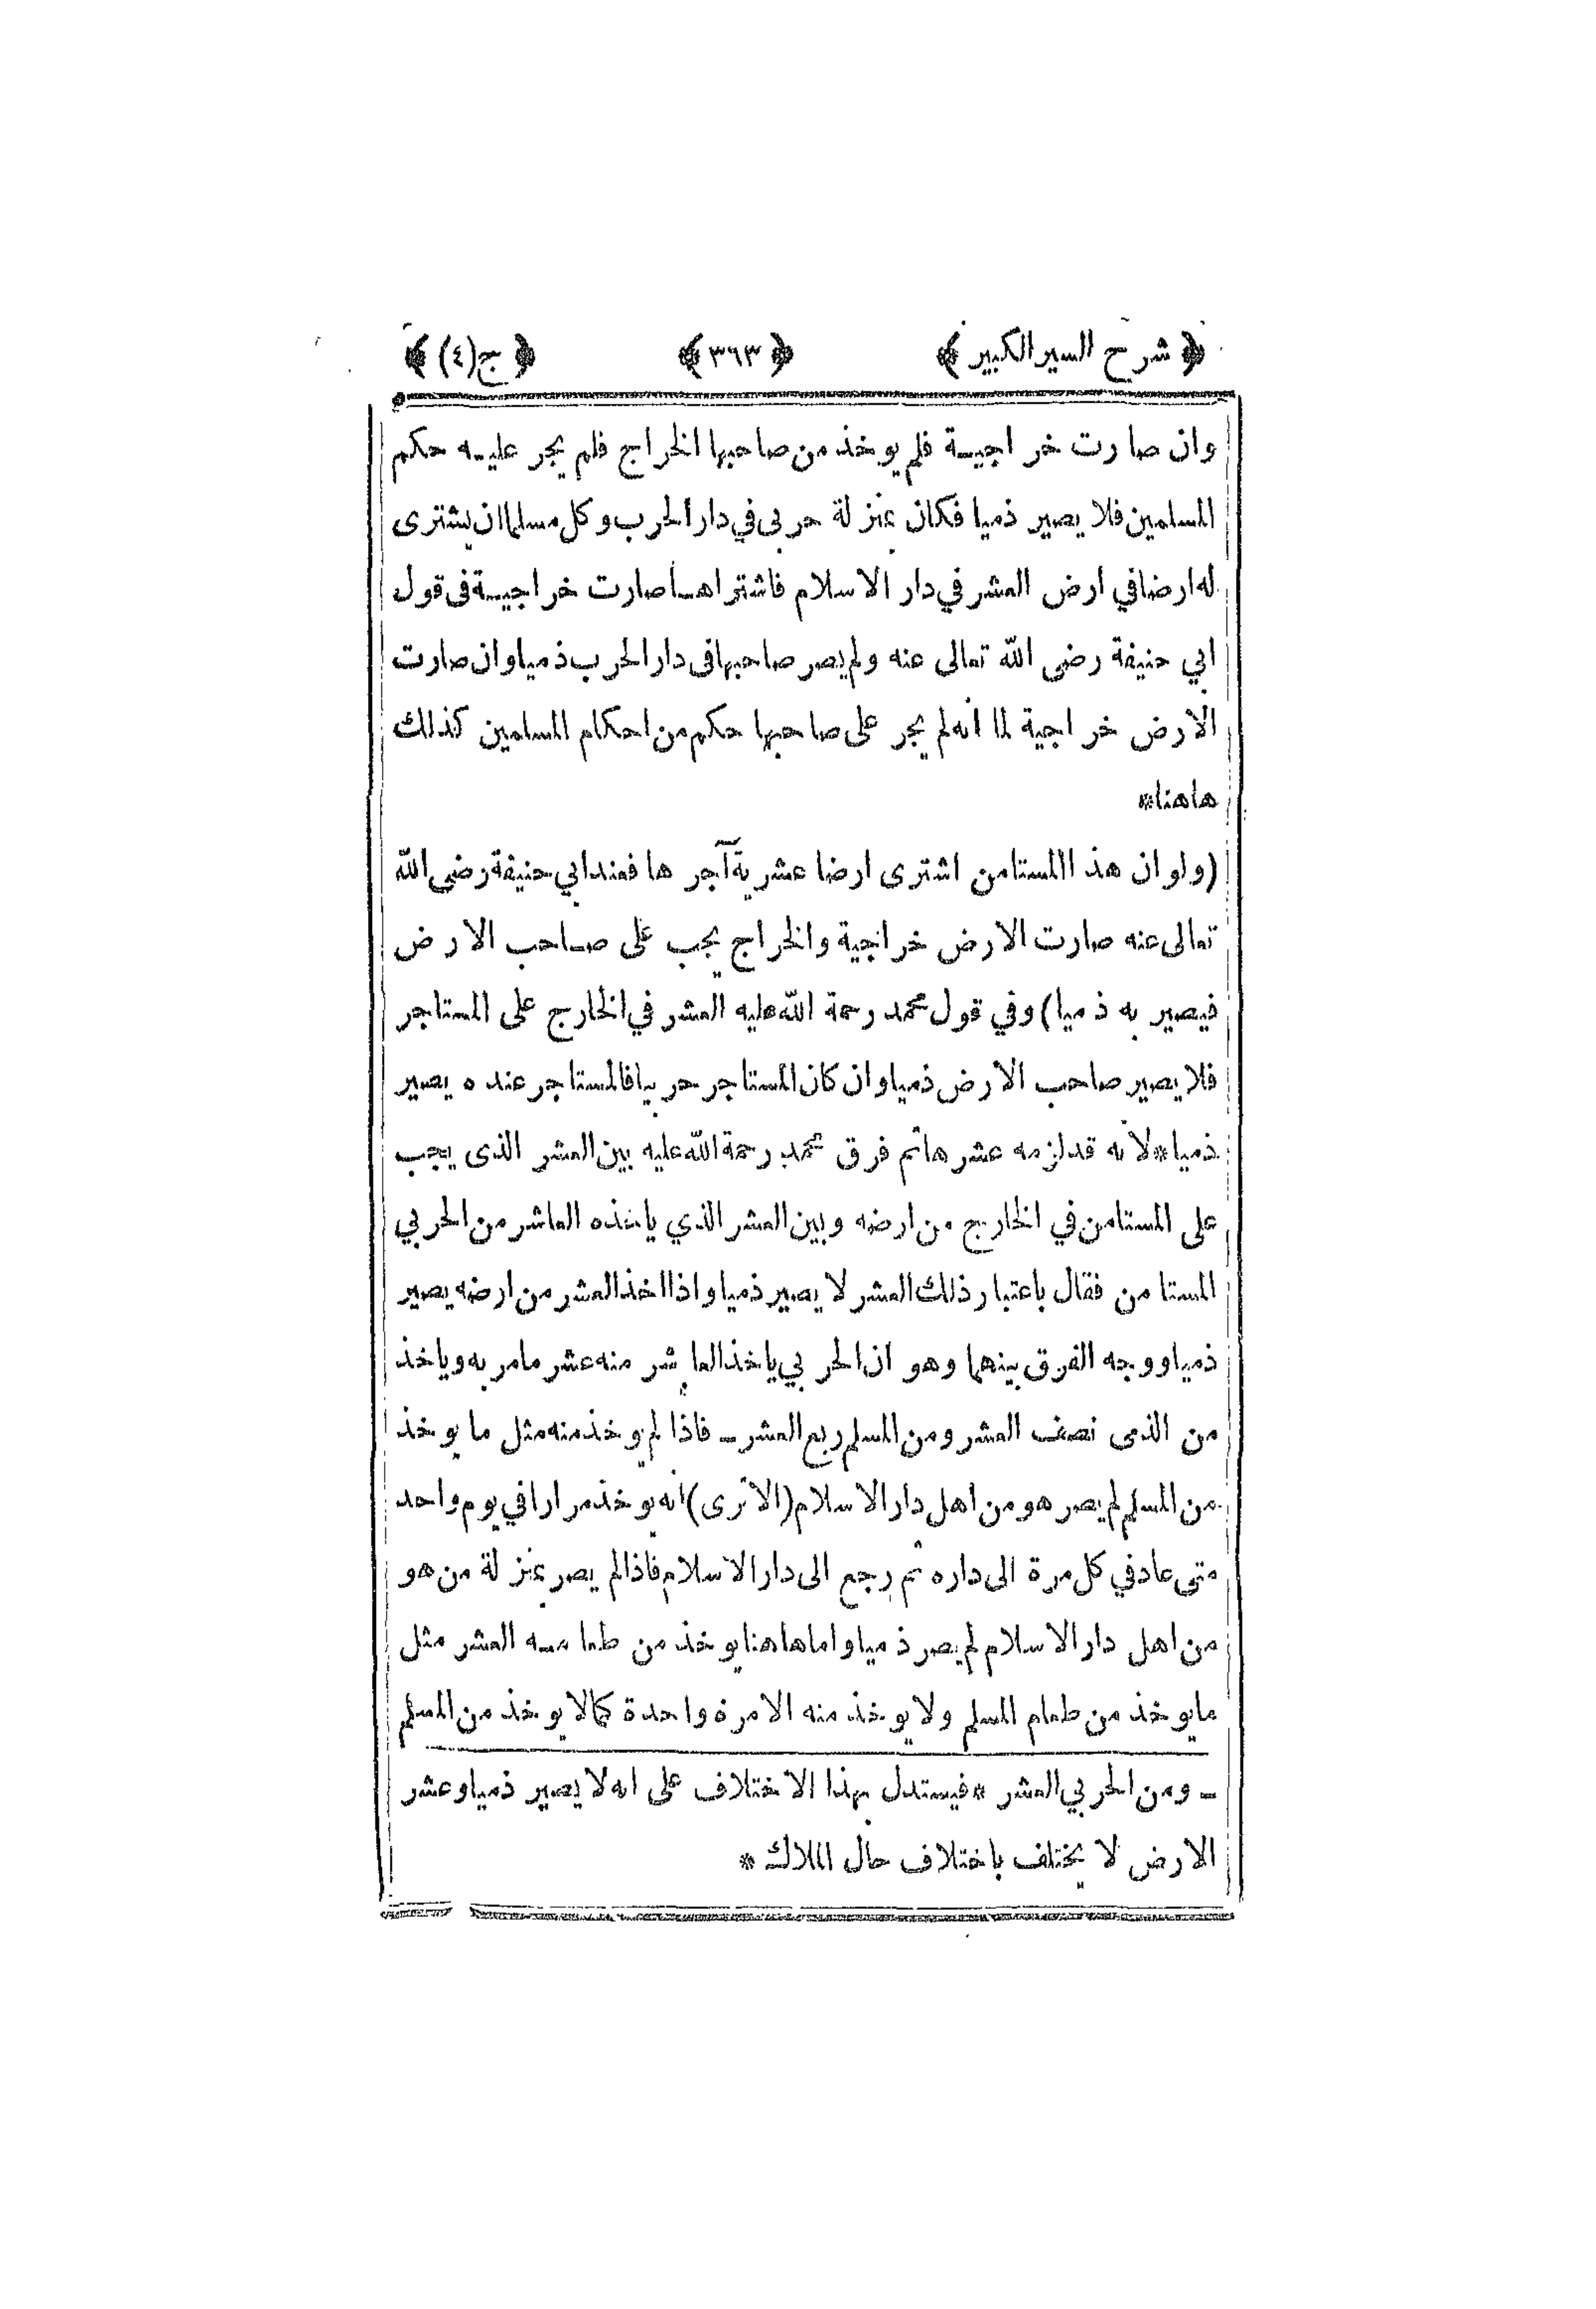 ﴿ شرح السير الكبير ﴾ ﴿ ٣٦٣ ﴾ ﴿ ج(٤) ﴾
وان صارت خراجية فلم يوخذ من صاحبها الخراج فلم يجر عليه حكم
المسلمين فلا يصير ذميا فكان بمنزلة حربى في دار الحرب وكل مسلما ان يشترى
له ارضا في ارض العشر في دار الاسلام فاشتراها صارت خراجية فى قول
ابي حنيفة رضى الله تعالى عنه ولم يصر صاحبها فى دار الحرب ذميا وان صارت
الارض خراجية لما انه لم يجر على صاحبها حكم من احكام المسلمين كذلك
هاهنا*
(ولو ان هذا المستامن اشترى ارضا عشرية آجرها فعند ابي حنيفة رضى الله
تعالى عنه صارت الارض خراجية والخراج يجب على صاحب الارض
فيصير به ذميا) وفي قول محمد رحمة الله عليه العشر في الخارج على المستاجر
فلا يصير صاحب الارض ذميا وان كان المستاجر حربيا فالمستاجر عنده يصير
ذميا*لانه قد لزمه عشرها ثم فرق محمد رحمة الله عليه بين العشر الذى يجب
على المستامن في الخارج من ارضه وبين العشر الذي ياخذه العاشر من الحربي
المستامن فقال باعتبار ذلك العشر لا يصير ذميا واذا اخذ العشر من ارضه يصير
ذميا ووجه الفرق بينهما وهو ان الحربي ياخذ العاشر منه عشر ما مر به وياخذ
من الذمى نصف العشر ومن المسلم ربع العشر ـ فاذا لم يوخذ منه مثل ما يوخذ
من المسلم لم يصر هو من اهل دار الاسلام (الا ترى) انه يوخذ مرارا في يوم واحد
متى عاد في كل مرة الى داره ثم رجع الى دار الاسلام فاذا لم يصر بمنزلة من هو
من اهل دار الاسلام لم يصر ذميا واما هاهنا يوخذ من طعامه العشر مثل
ما يوخذ من طعام المسلم ولا يوخذ منه الا مرة واحدة كما لا يوخذ من المسلم
ـ ومن الحربي العشر *فيستدل بهذا الاختلاف على انه لا يصير ذميا وعشر
الارض لا يختلف باختلاف حال الملاك *